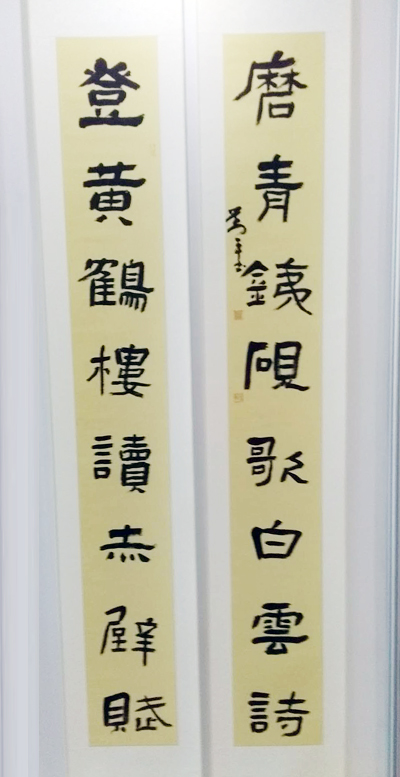 磨青銕硯歌白雲詩
登黃鶴樓讀赤壁賦